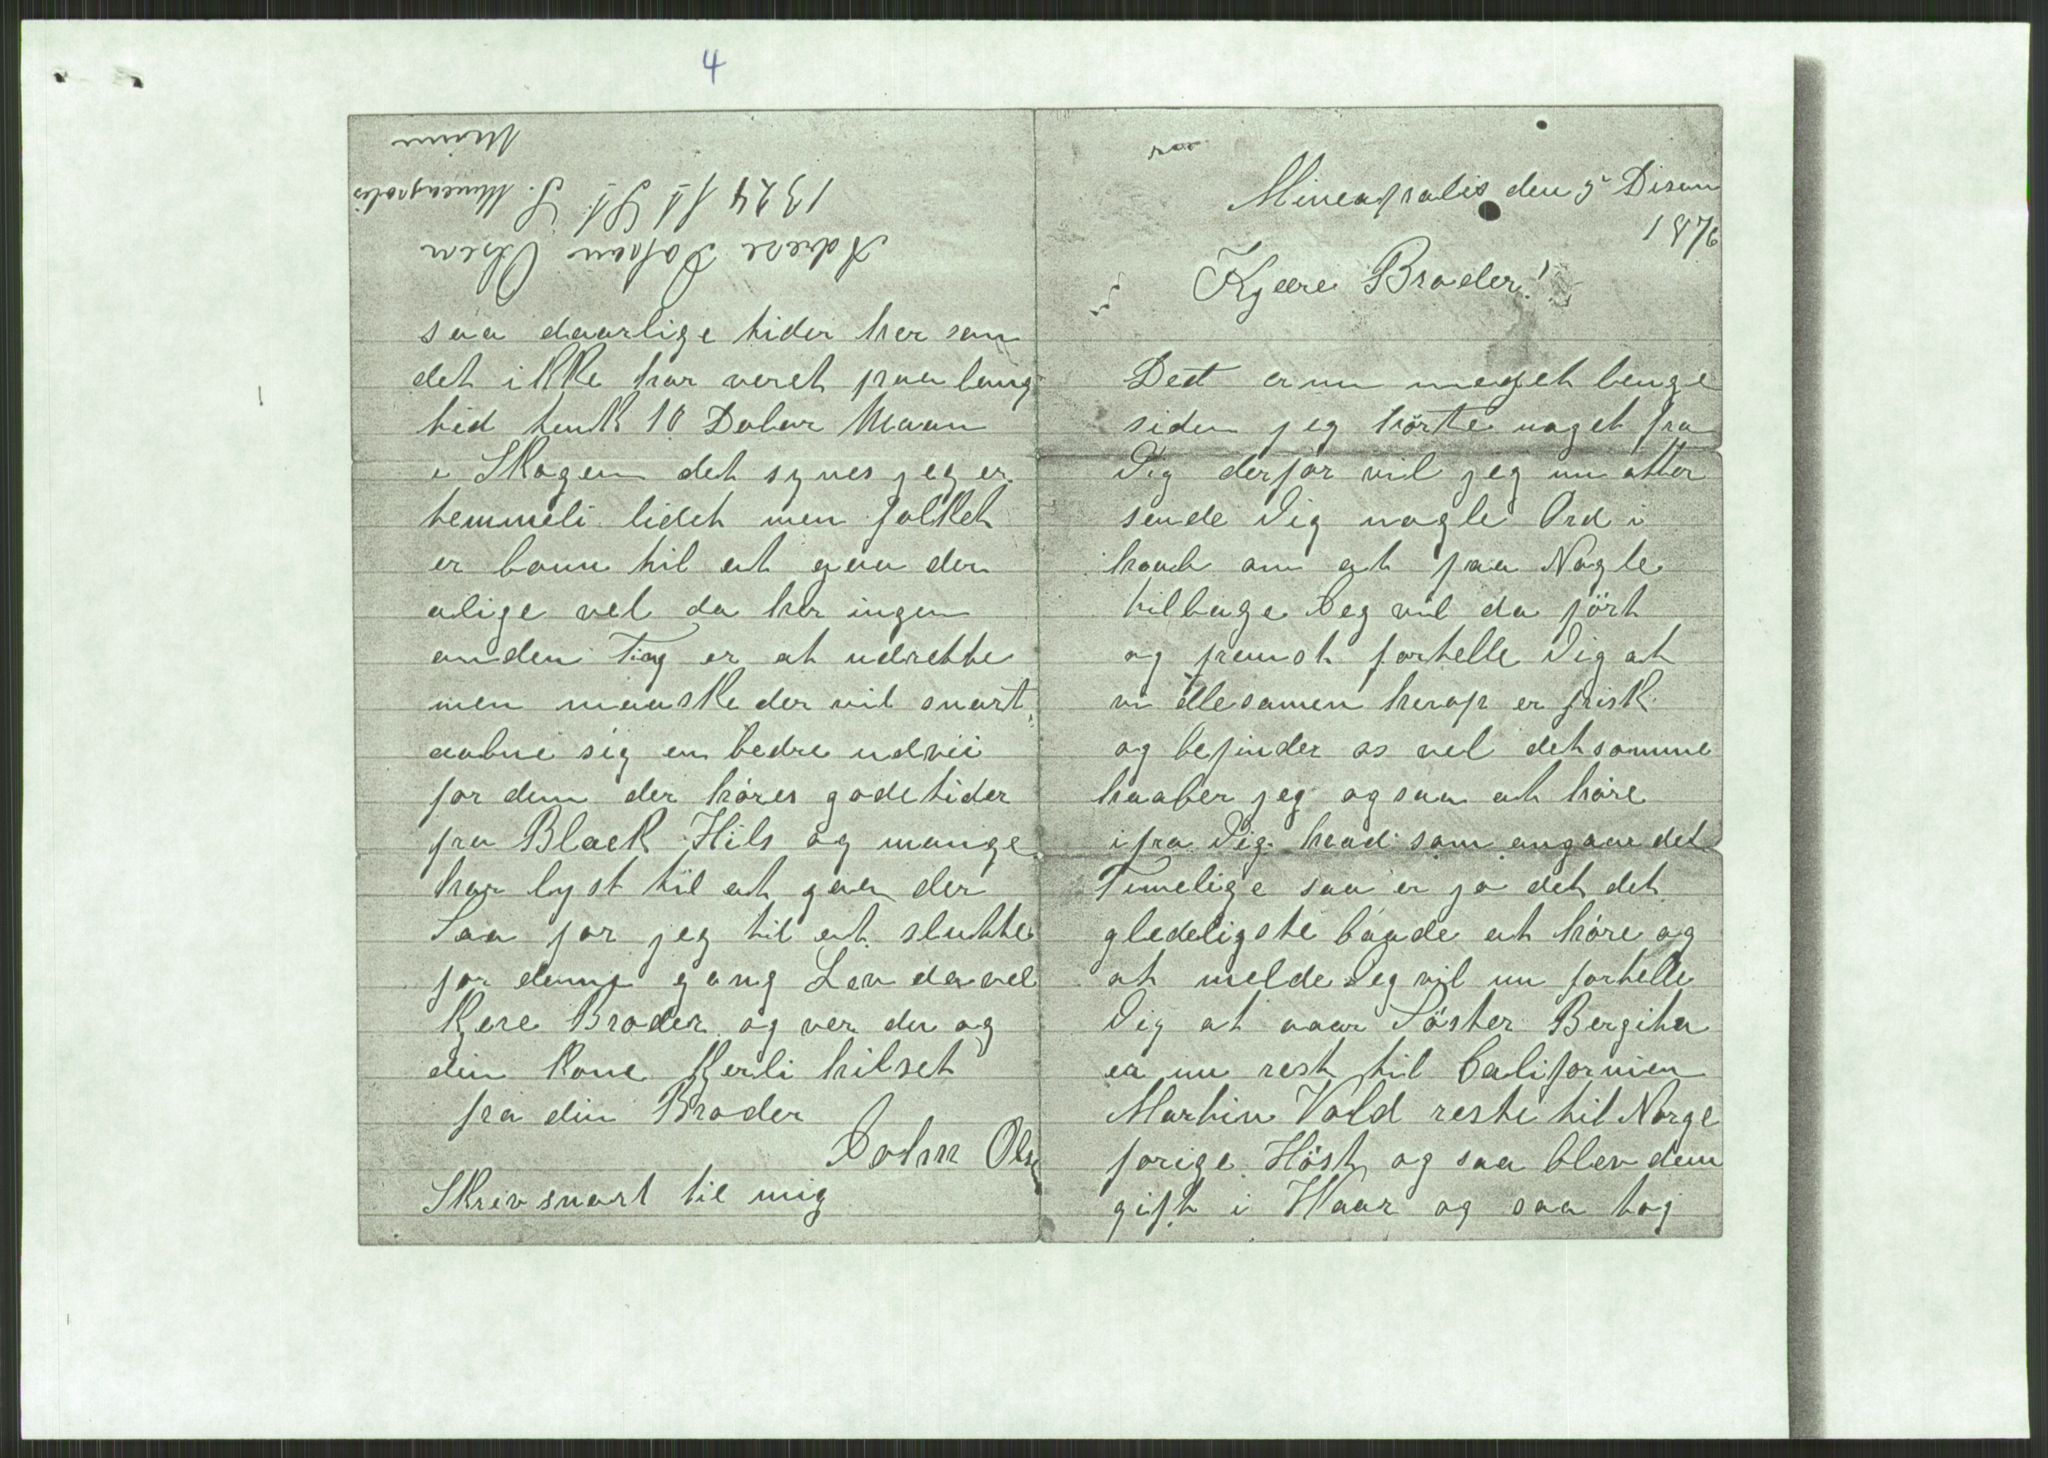 4
Mineapralis den 5 Disem
1876
Kjære Broder!
Det er nu meget lenge
siden jeg hørte noget fra
Dig derfor vil jeg nu atter
sende Dig nogle Ord i
haab om at faa Nogle
tilbage Jeg vil da først
og fremst fortelle Dig at
vi allesamen herop er frisk
og befinder os vel det samme
haaber jeg ogsaa at høre
ifra Dig hvad som angaar det
Timelige saa er jo det det
gledeligste baade at høre og
at melde Jeg vil nu fortelle
Dig at vaar Søster Bergita
er nu rest til Californien
Martin Vold reste til Norge
forige Høst og saa blev dem
gift i Vaar og saa tog
saa daarlige tider her som
det ikke har veret paa lang
tid tenk 10 Dolar Maan
i Skogen det synes jeg er
temmeli lidet men folket
er baun til at gaa der
alige vel da her ingen
anden Ting er at udrette
men maaske der vil snart
aabne sig en bedre udvii
for dem der høres gode tider
fra Black Hils og mange
har lyst til at gaa der
Saa for jeg til at slutte
for denne gang Lev da vel
Kjere Broder og ver du og
din Kone Kjerli hilset
fra din Broder
John Olse
Skriv snart til mig
Adrese Johan Olsen
1324 1st St. S. Mineapolis
Minn